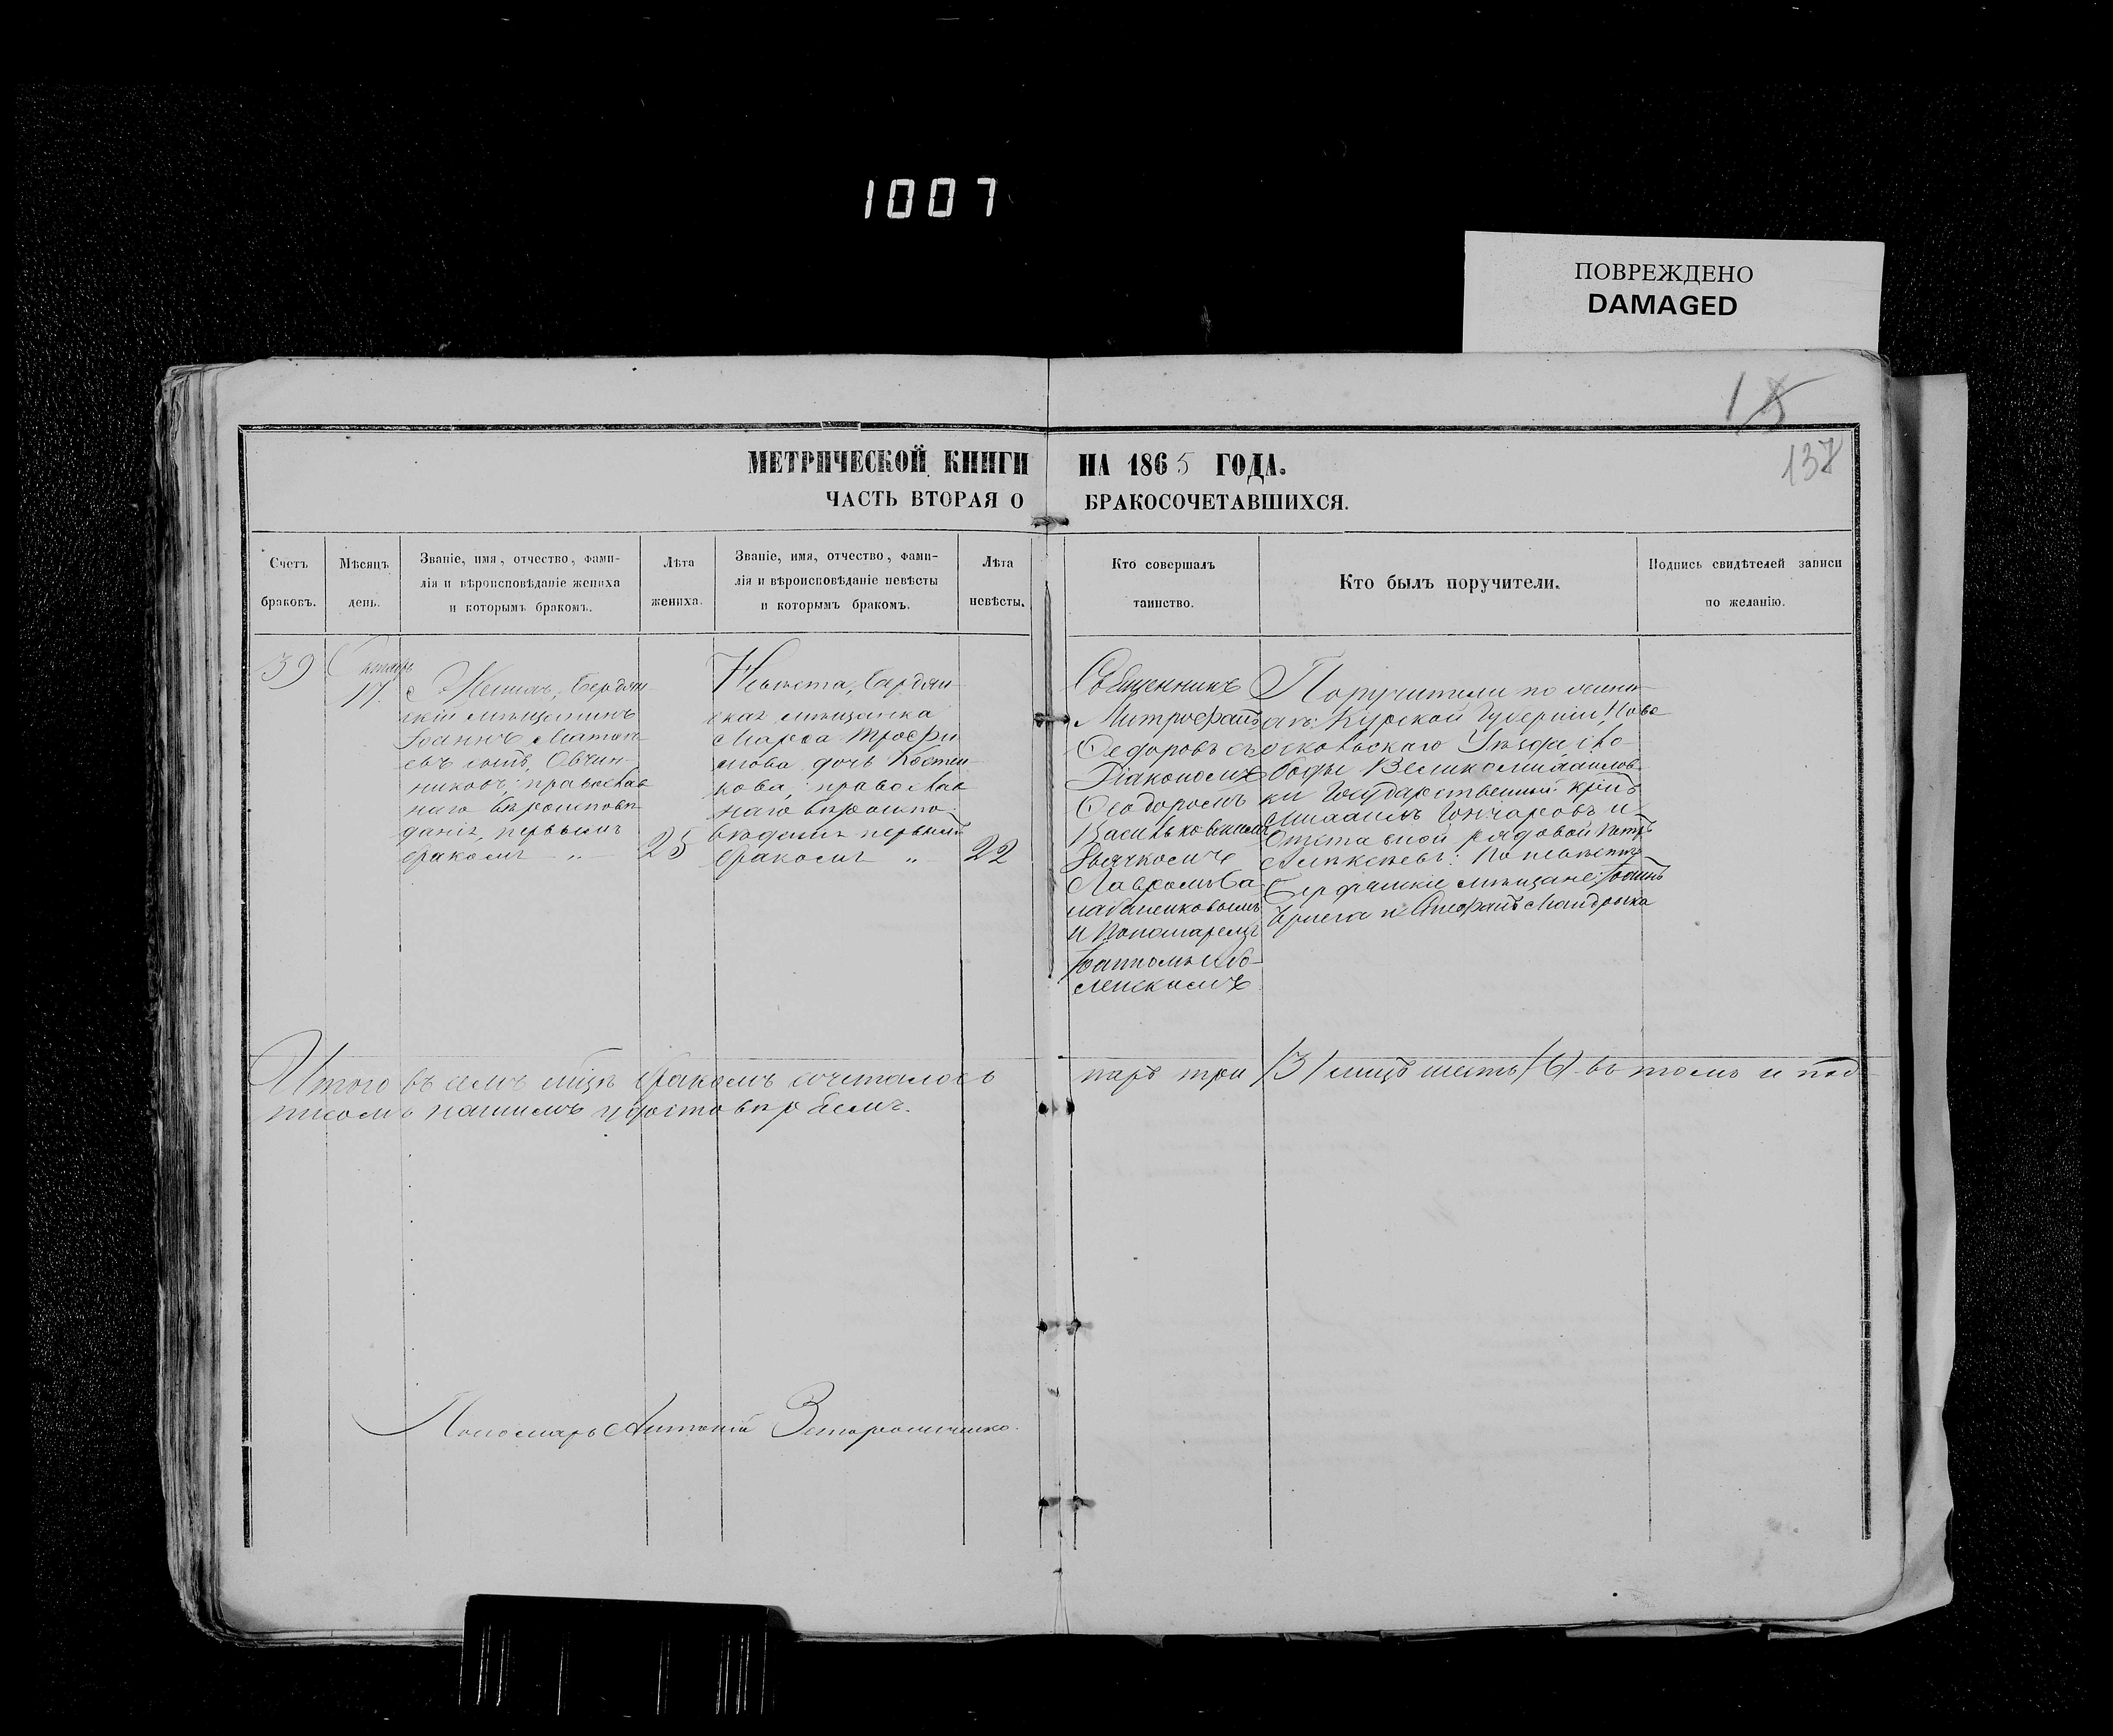 1007
ПОВРЕЖДЕНО
DAMAGED
137
МЕТРИЧЕСКОЙ КНИГИ НА 1865 ГОДА.
ЧАСТЬ ВТОРАЯ О БРАКОСОЧЕТАВШИХСЯ.
Счетъ
браковъ.
Мѣсяцъ
день.
Званіе, имя, отчество, фами-
лія и вѣроисповѣданіе жениха
и которымъ бракомъ.
Лѣта
жениха.
Званіе, имя, отчество, фами-
лія и вѣроисповѣданіе невѣсты
и которымъ бракомъ.
Лѣта
невѣсты.
Кто совершалъ
таинство.
Кто былъ поручители.
Подпись свидѣтелей записи
по желанію.
39
17.
Женихъ, Бердян-
скій мѣщанинъ
Іоаннъ
сынъ, Овчин-
никовъ, православ
наго вѣроисповѣ
данія, первымъ
бракомъ „
25
Невѣста, Бердян
ская мѣщанка
Марѳа Трофи
мова дочь Костен
кова, православ
наго вѣроиспо-
вѣданія первымъ
бракомъ „
22
Священникъ
Митрофанъ
Ѳедоровъ съ
Діакономъ
Ѳеодоромъ
Васильковскимъ
Дьячкомъ
и Пономаремъ
Іоанномъ
Поручители по жени-
хѣ: Курской Губерніи, Ново
оскольскаго Уѣзда, сло-
боды Великомихайлов
ки Государственный крнъ
Михаилъ Гончаровъ и
Отставной рядовой Петръ
По невѣстѣ
Бердянскіе мѣщане: Іоаннъ
и Стефанъ Мандрыка
Итого въ семъ мцѣ бракомъ сочеталось паръ три /3/ лицъ шесть /6/ въ томъ и под
писомъ нашимъ удостовѣряемъ.
Пономарь Антоній